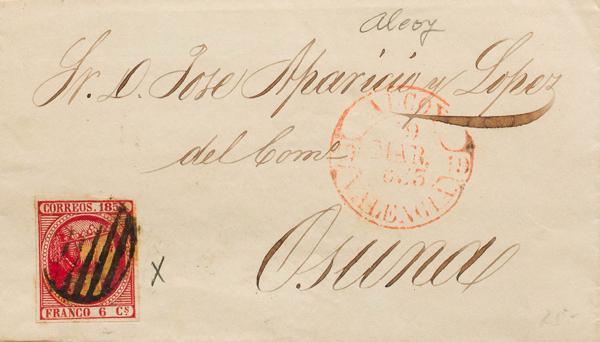 Alcoy
Sr. D. Jose Aparicio y Lopez
del Comº
Osuna
ALCOY
9
MAR.
853
VALENCIA
CORREOS. 185
FRANCO 6 Cs
X
25-